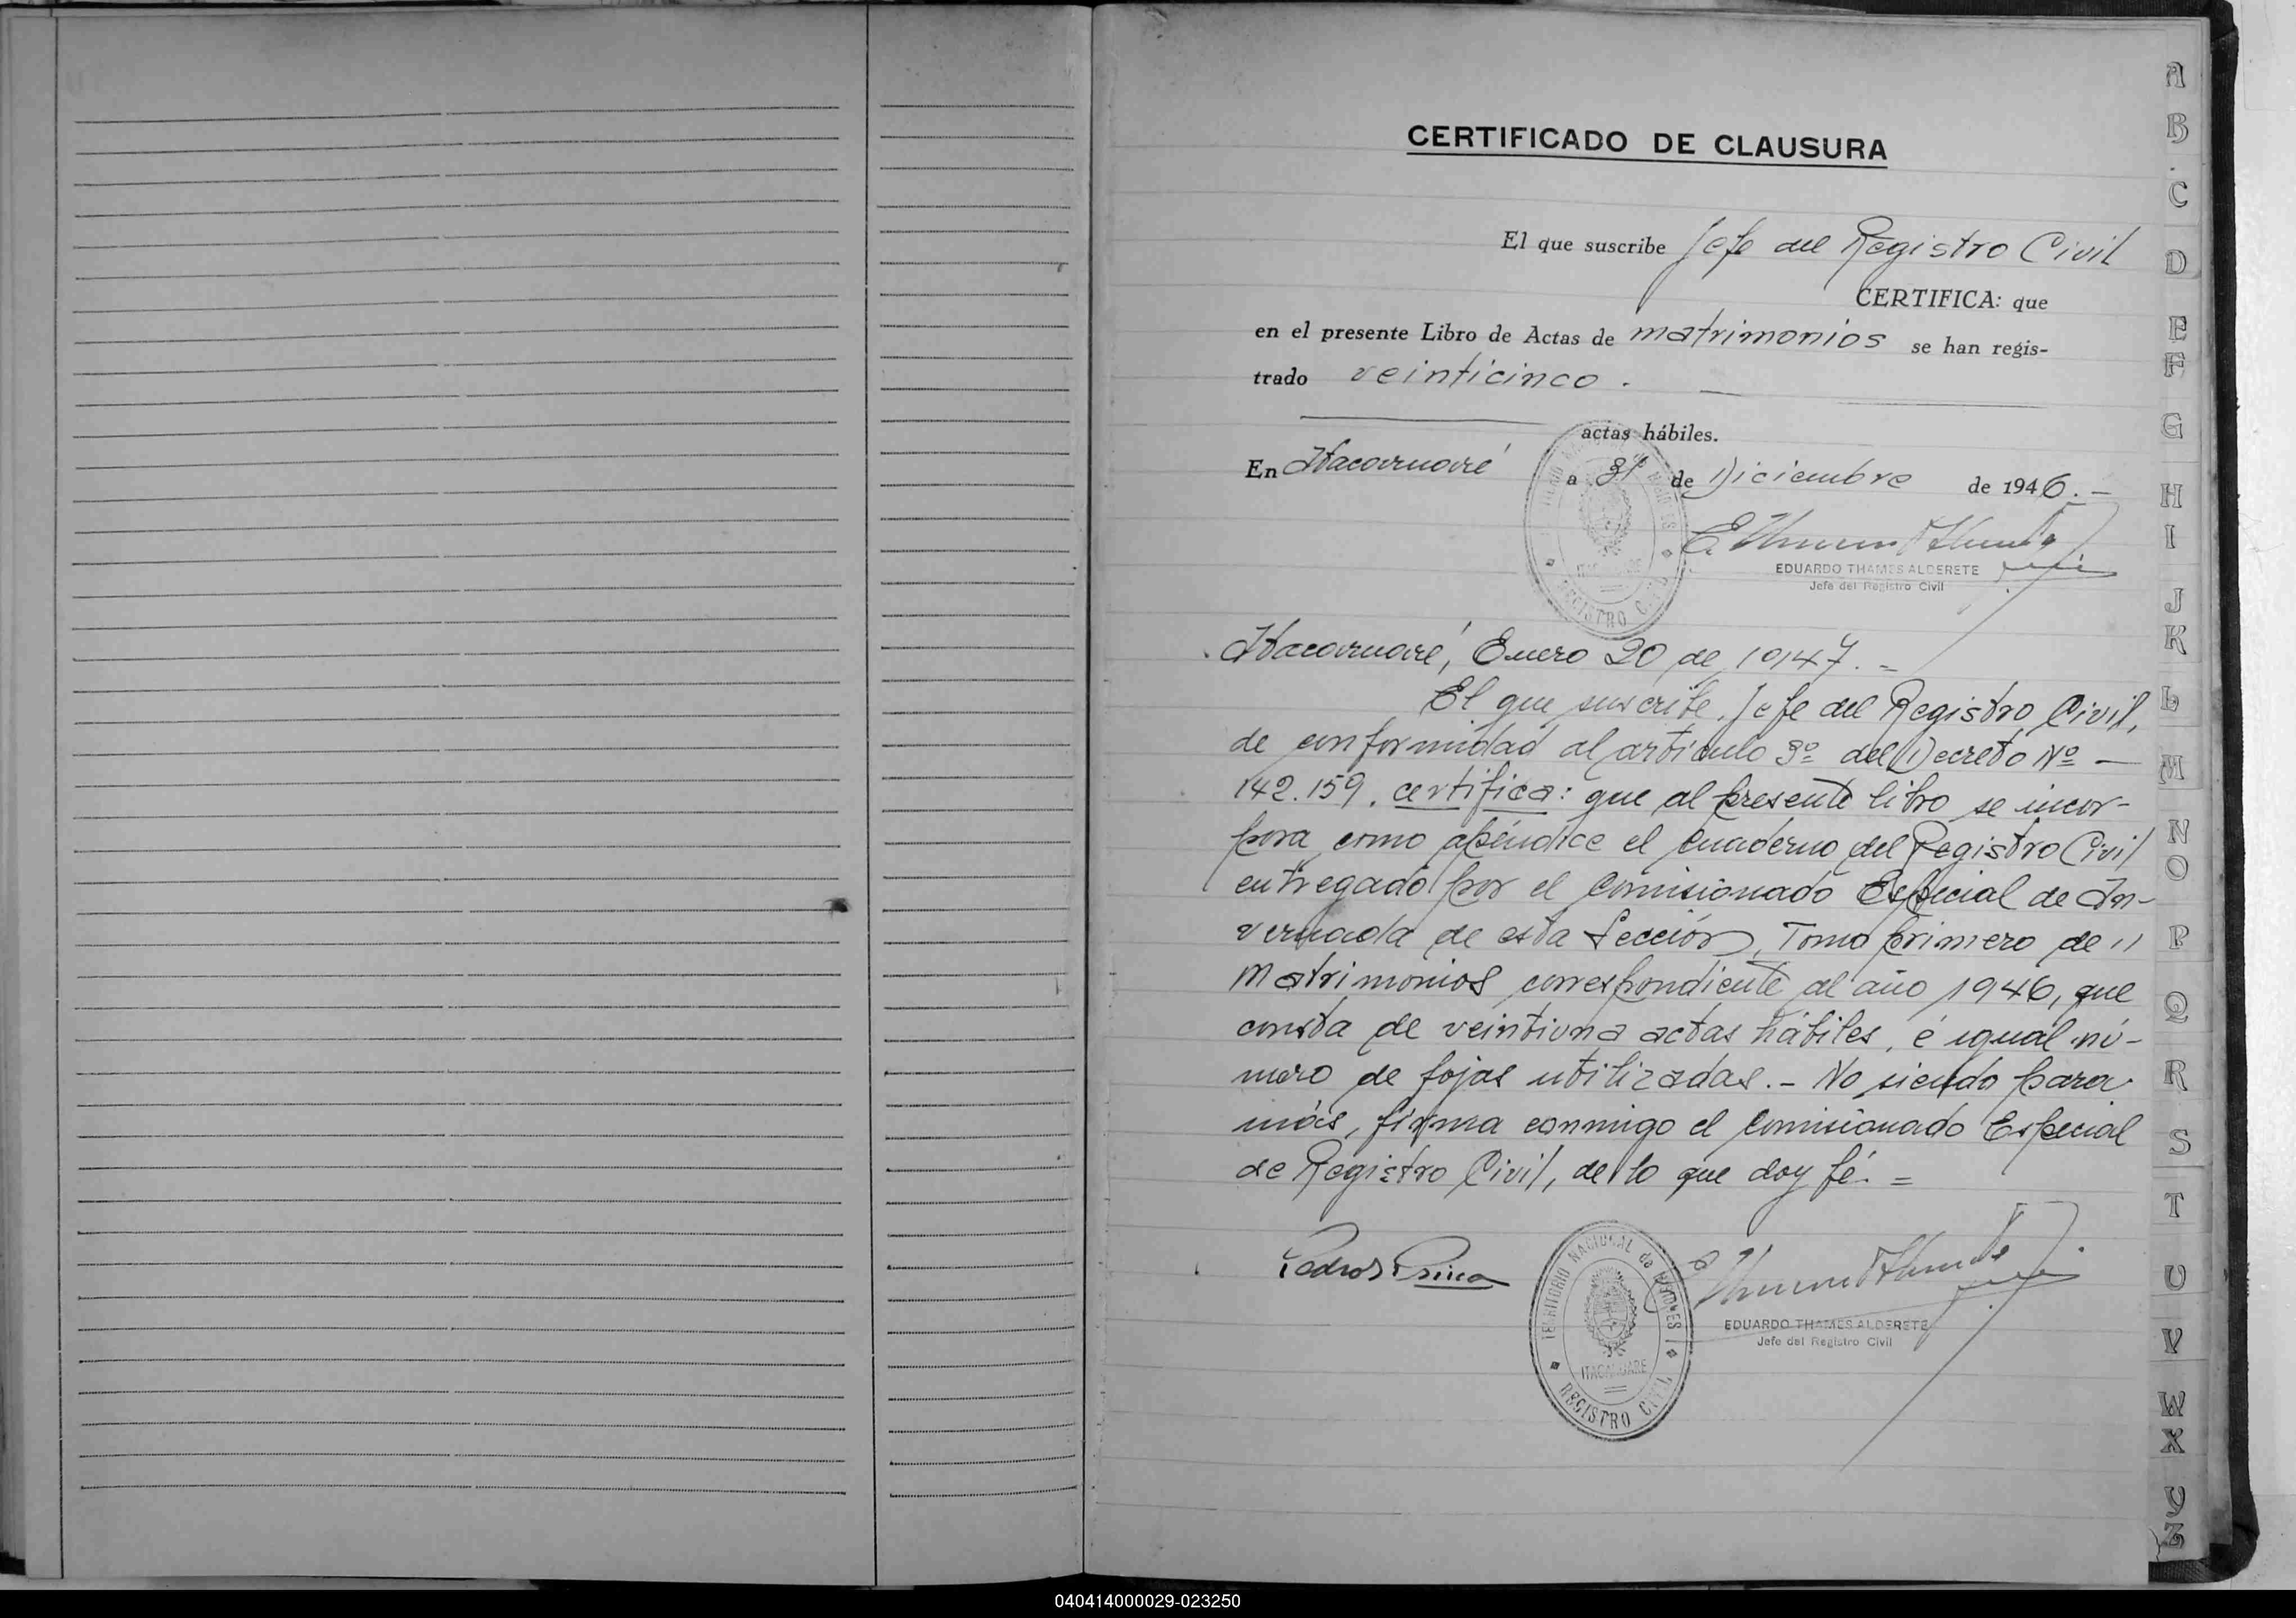 CERTIFICADO DE CLAUSURA
El que suscribe Jefe del Registro Civil
CERTIFICA: que
en el presente Libro de Actas de matrimonios se han regis-
trado veinticinco.
actas hábiles.
En Itacaruaré a 31 de Diciembre de 1946.-
EDUARDO THAMES ALDERETE
Jefe del Registro Civil
Itacaruaré, Enero 20 de 1947.=
El que suscribe, Jefe del Registro Civil,
de conformidad al artículo 3º del Decreto Nº —
142.159, certifica: que al presente libro se incor-
pora como apéndice el cuaderno del Registro Civil
entregado por el Comisionado Especial de In-
vernada de esta Sección, Tomo primero de "
Matrimonios correspondiente al año 1946, que
consta de veintiuna actas hábiles, é igual nú-
mero de fojas utilizadas.- No siendo para
más, firma conmigo el Comisionado Especial
de Registro Civil, de lo que doy fé.=
TERRITORIO NACIONAL de MISIONES
ITACARUARE
REGISTRO CIVIL
EDUARDO THAMES ALDERETE
Jefe del Registro Civil
A
B
C
D
E
F
G
H
I
J
K
L
M
N
O
P
Q
R
S
T
U
V
W
X
Y
Z
040414000029-023250